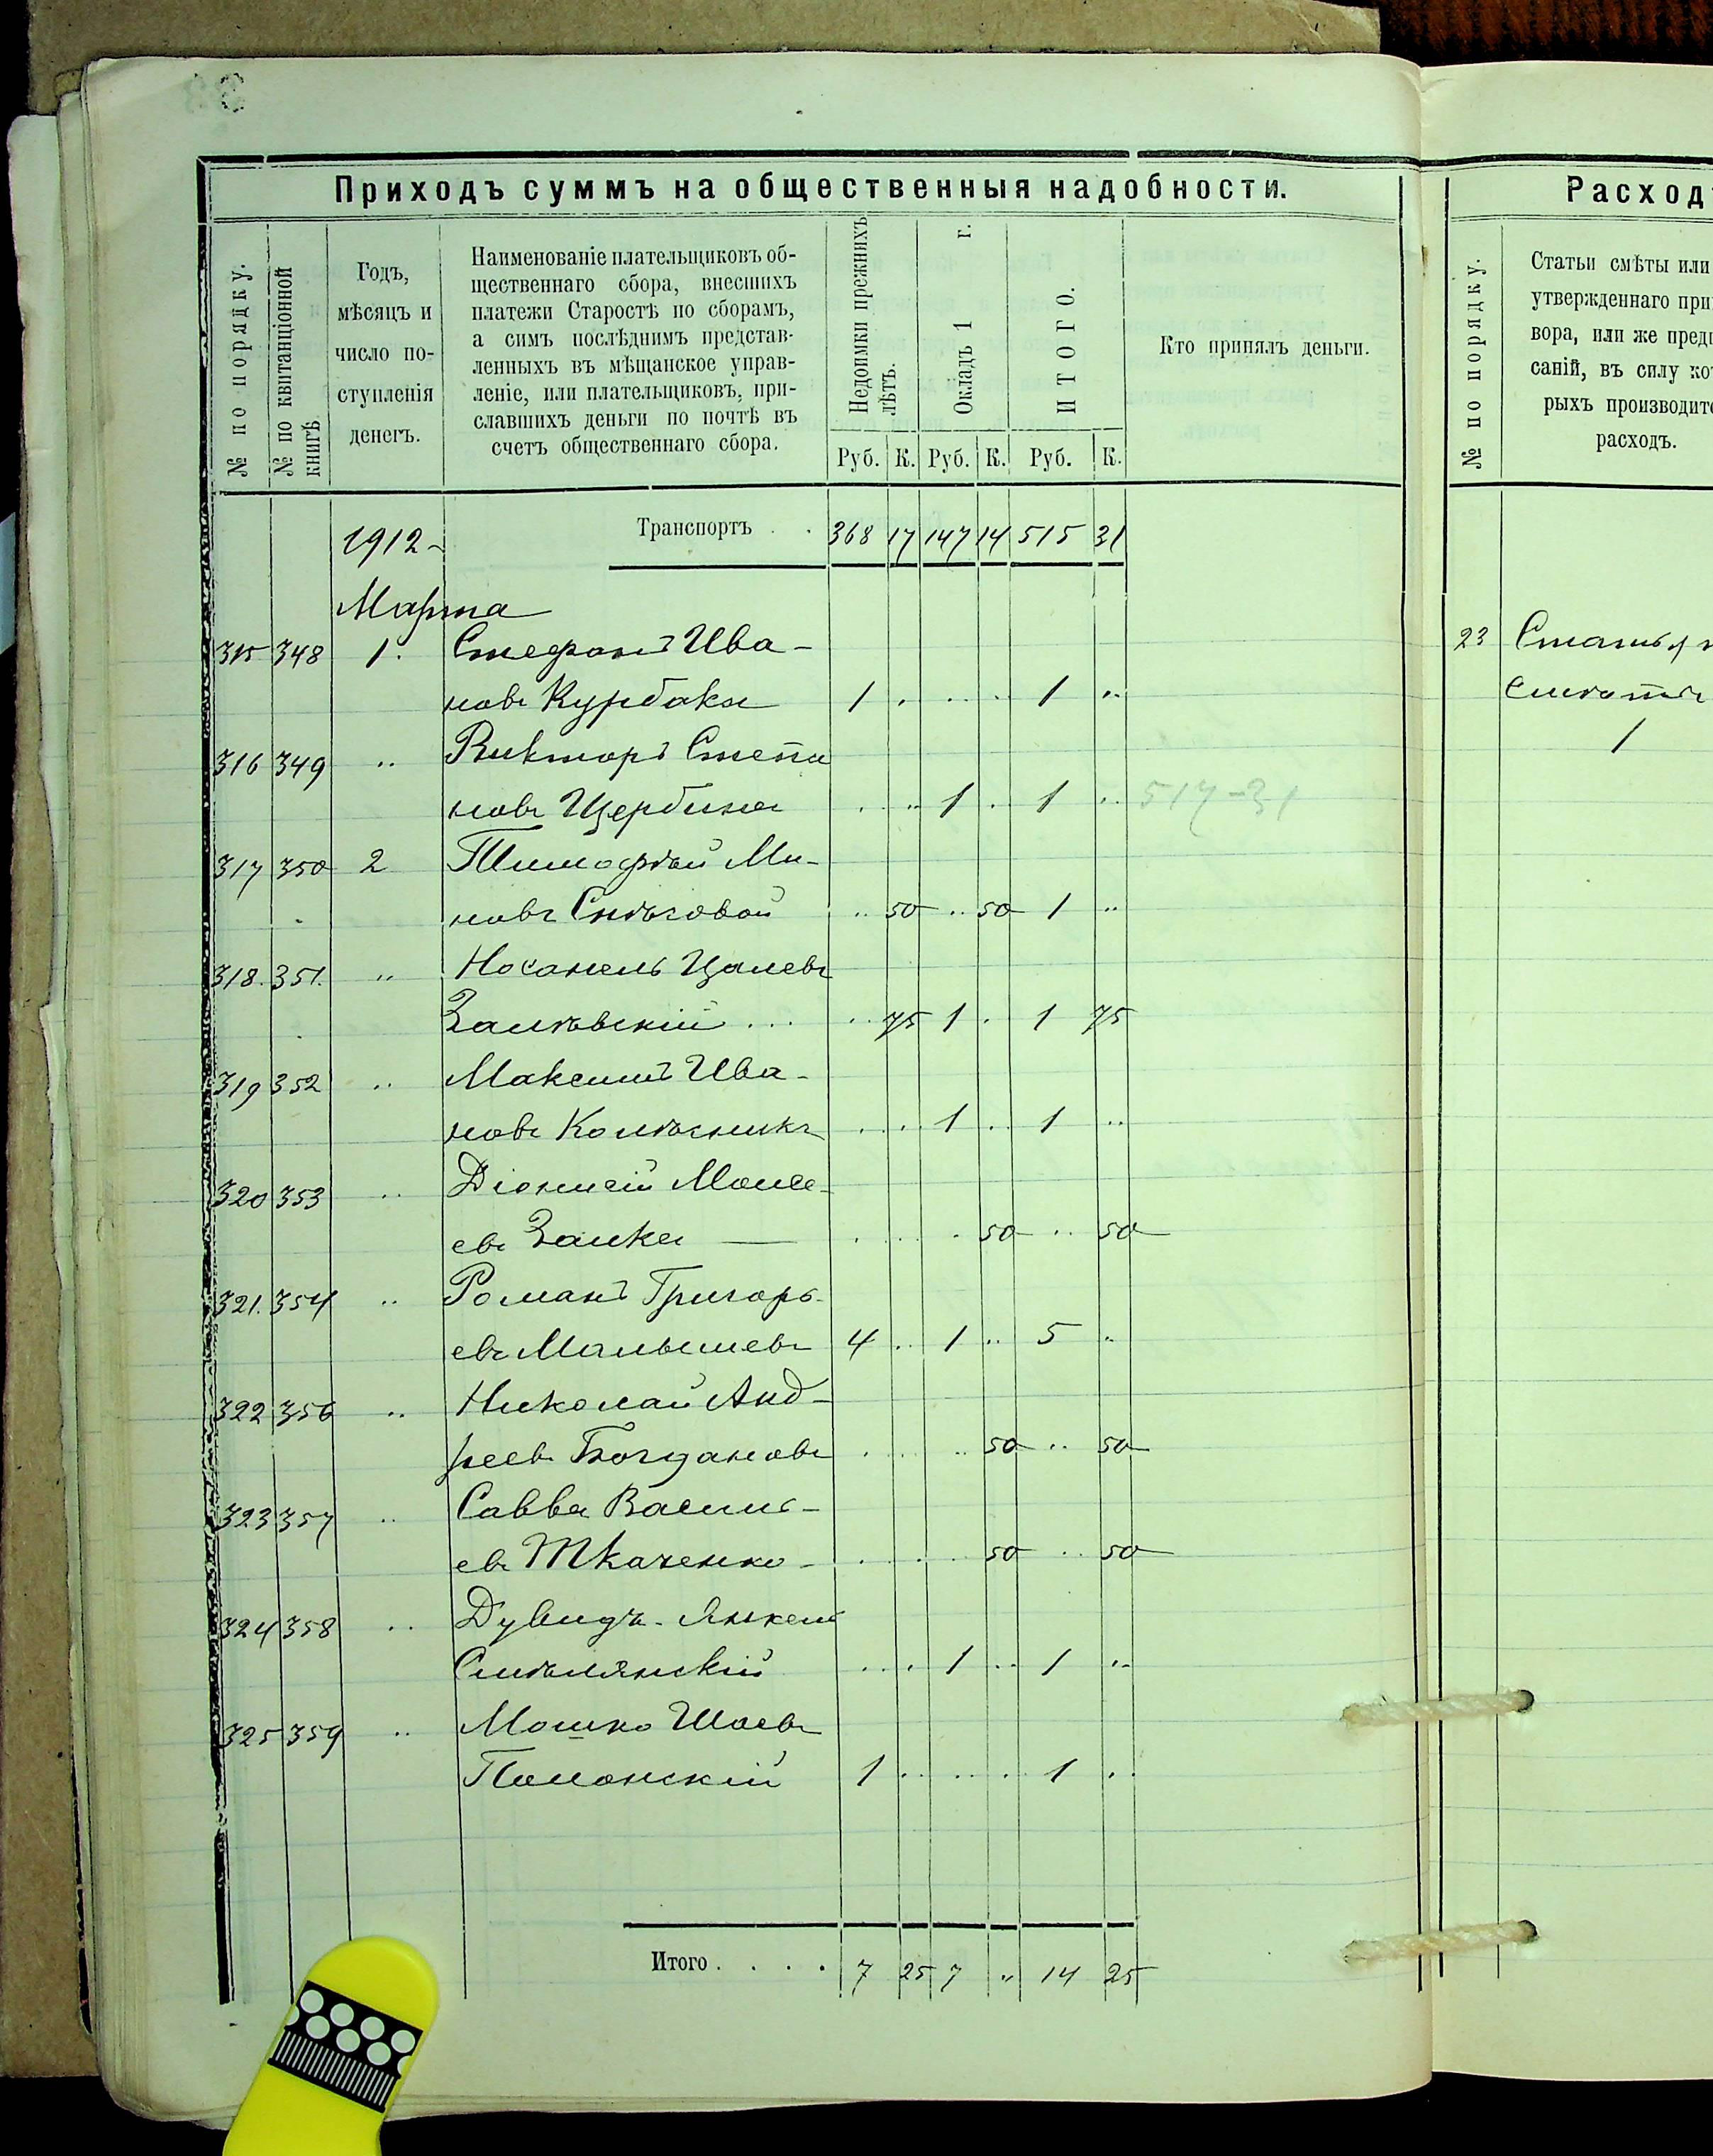 Приходъ суммъ на общественныя надобности.
№ по порядку.
№ по квитанціонной
книгѣ
Годъ,
мѣсяцъ и
число по-
ступленія
денегъ.
Наименованіе плательщиковъ об-
щественнаго сбора, внесшихъ
платежи Старостѣ по сборамъ,
а симъ послѣднимъ представ-
ленныхъ въ мѣщанское управ-
леніе, или плательщиковъ, при-
славшихъ деньги по почтѣ въ
счетъ общественнаго сбора.
Недоимки прежнихъ
лѣтъ.
Окладъ 1 г.
ИТОГО.
Руб. К. Руб. К. Руб. К.
Кто принялъ деньги.
1912 Транспортъ . . 368 17 147 14 515 31
Марта
315 348 1. Стефанъ Ива-
новъ Курбака 1 . .. .. 1 ..
316 349 .. Викторъ Степа
новъ Щербина . .. 1 . 1 .. 517-31
317 350 2 Тимофѣй Ми-
новъ Снѣговой .. 50 .. 50 1 ..
318. 351. .. Носанель Цалевъ
Залѣвскій ... .. 75 1 . 1 75
319 352 .. Максимъ Ива-
новъ Колѣсникъ .. .. 1 .. 1 ..
320 353 .. Діонисій Моисе-
евъ Заика — . .. . 50 .. 50
321. 354 .. Романъ Григорь-
евъ Малышевъ 4 .. 1 .. 5 ..
322 356 .. Николай Анд-
реевъ Богдановъ . .. .. 50 .. 50
323 357 .. Савва Василь-
евъ Ткаченко - . . .. 50 .. 50
324 358 .. Дувидъ-Янкель
Смѣлянскій .. . 1 .. 1 ..
325 359 .. Мошко Шаевъ
Полонскій 1 .. .. .. 1 ..
Итого . . . . 7 25 7 " 14 25
Расходъ
№ по порядку.
Статьи смѣты или
утвержденнаго при
вора, или же пред
саній, въ силу ко
рыхъ производит
расходъ.
23 Статья
1